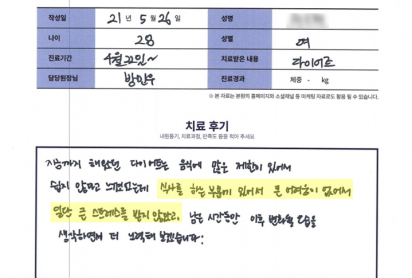 작성일 21년 5월 26일 성명
나이 28 성별 여
진료기간 4월 22일~ 치료받은 내용 다이어트
담당원장님 방민우 진료경과 체중 - kg
※ 본 자료는 본원의 홈페이지와 소셜채널 등 마케팅 자료로도 활용 될 수 있습니다.
치료 후기
내원동기, 치료과정, 만족도 등을 적어 주세요.
지금까지 해왔던 다이어트는 음식에 많은 제한이 있어서
쉽지 않다고 느꼈었는데 식사를 하는 부분에 있어서 큰 어려움이 없어서
일단 큰 스트레스를 받지 않았고, 남은 시간동안 이후 변화될 모습을
생각하면서 더 노력해 보겠습니다!